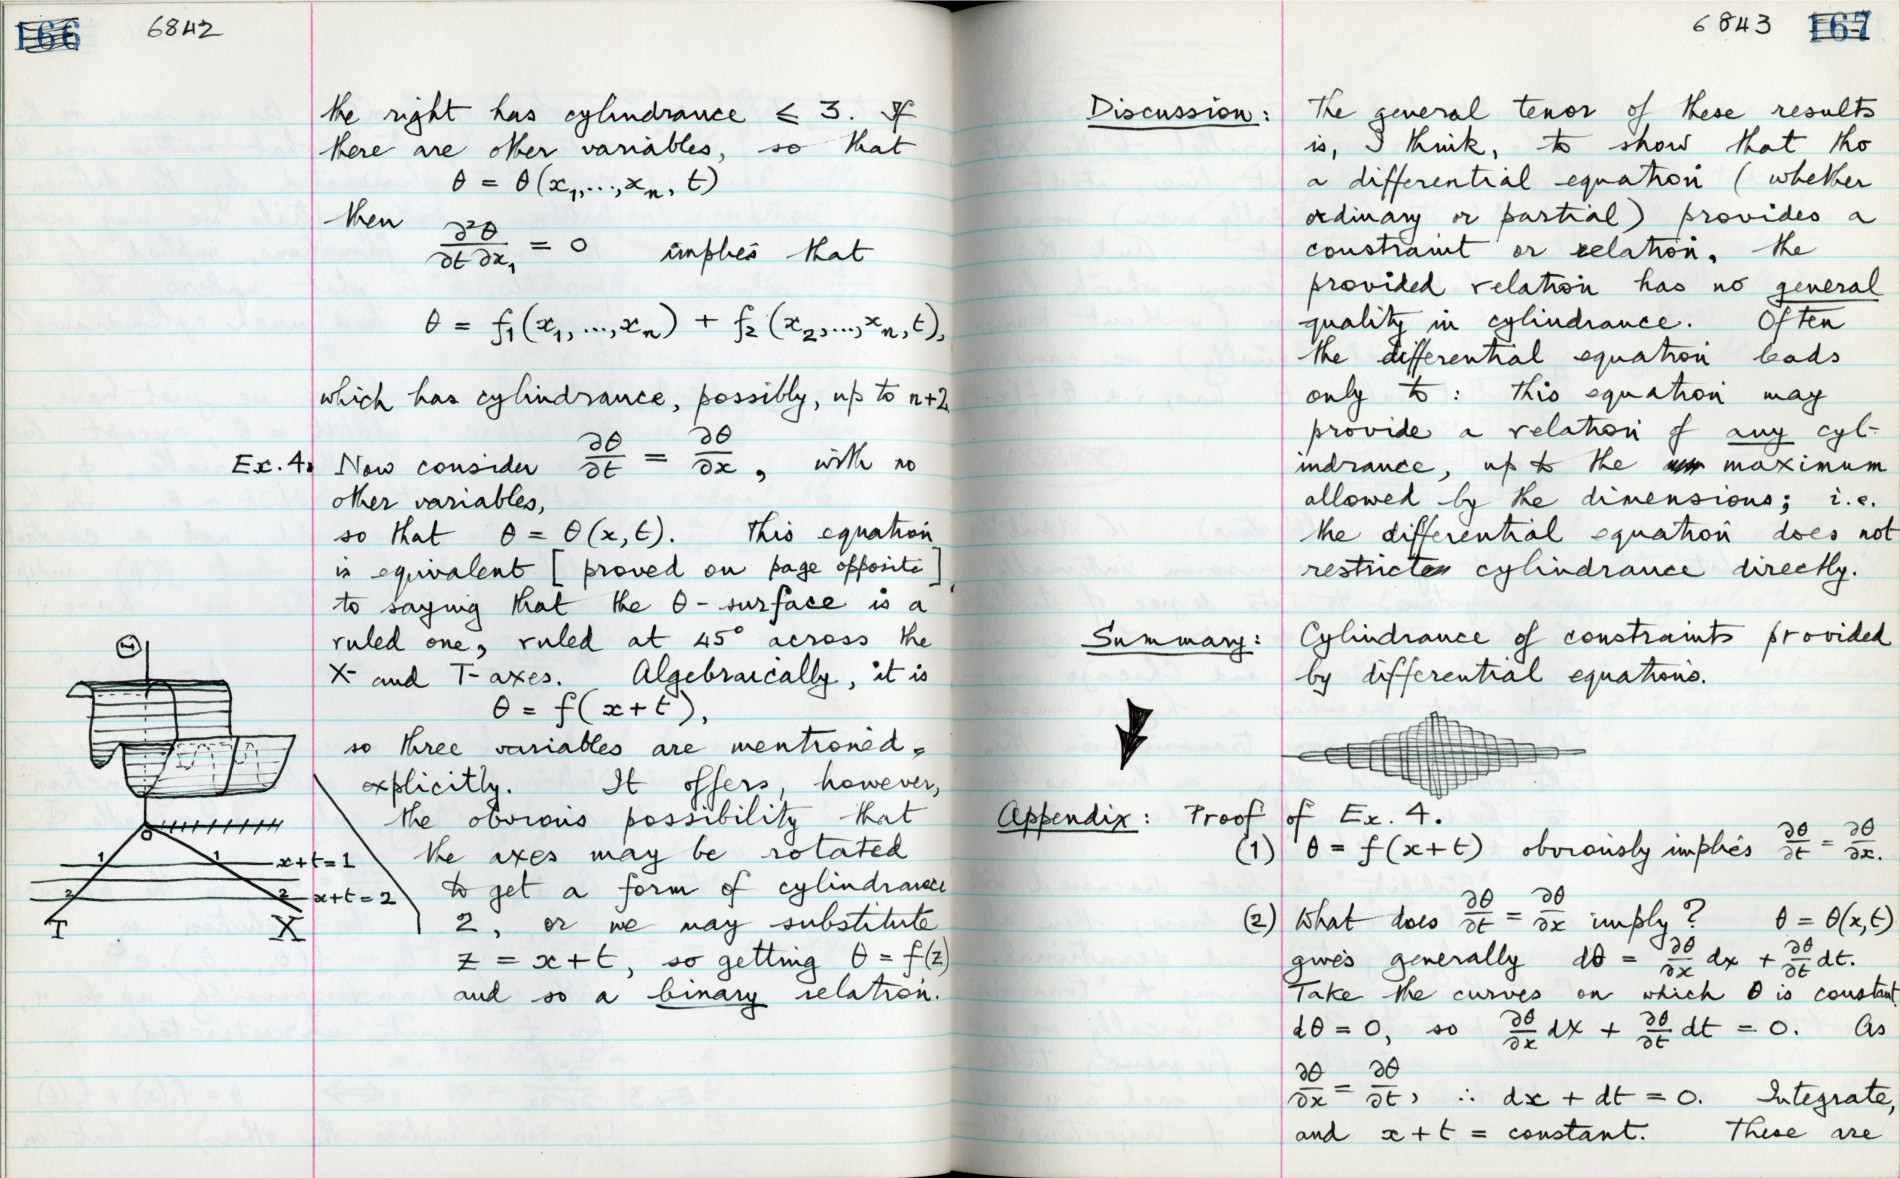 166 6842
the right has cylindrance ⩽ 3. If
there are other variables, so that
θ = θ(x₁,...,xₙ, t)
then
∂²θ/∂t ∂x₁ = 0 implies that
θ = f₁(x₁, ...,xₙ) + f₂(x₂,...,xₙ,t),
which has cylindrance, possibly, up to n+2
Ex. 4. Now consider ∂θ/∂t = ∂θ/∂x, with no
other variables,
so that θ = θ(x,t). This equation
is equivalent [proved on page opposite]
to saying that the θ-surface is a
ruled one, ruled at 45° across the
X- and T-axes. Algebraically, it is
θ = f(x+t),
so three variables are mentioned
explicitly. It offers, however,
the obvious possibility that
the axes may be rotated
to get a form of cylindrance
2, or we may substitute
z = x+t, so getting θ = f(z)
and so a binary relation.
Θ
O
1 1 x+t=1
2 2 x+t=2
T X
6843 167
Discussion: The general tenor of these results
is, I think, to show that tho
a differential equation (whether
ordinary or partial) provides a
constraint or relation, the
provided relation has no general
quality in cylindrance. Often
the differential equation leads
only to: this equation may
provide a relation of any cyl-
indrance, up to the maximum
allowed by the dimensions; i.e.
the differential equation does not
restrict cylindrance directly.
Summary: Cylindrance of constraints provided
by differential equations.
Appendix: Proof of Ex. 4.
(1) θ = f(x+t) obviously implies ∂θ/∂t = ∂θ/∂x.
(2) What does ∂θ/∂t = ∂θ/∂x imply? θ = θ(x,t)
gives generally dθ = ∂θ/∂x dx + ∂θ/∂t dt.
Take the curves on which θ is constant
dθ = 0, so ∂θ/∂x dx + ∂θ/∂t dt = 0. As
∂θ/∂x = ∂θ/∂t, ∴ dx + dt = 0. Integrate,
and x+t = constant. These are